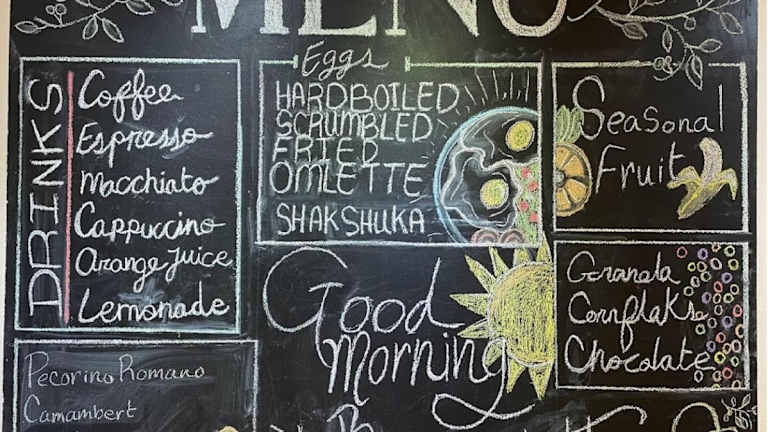 MENU
DRINKS
Coffee
Espresso
Macchiato
Cappuccino
Orange Juice
Lemonade
Eggs
HARDBOILED
SCRUMBLED
FRIED
OMLETTE
SHAKSHUKA
Seasonal
Fruit
Good
Morning
Granola
Cornflaks
Chocolate
Pecorino Romano
Camambert